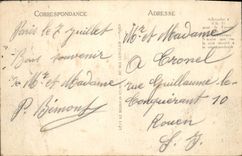 CORRESPONDANCE
ADRESSE
Paris le 8 Juillet
Bons souvenir
à Mr et Madame
P. Bémont
Mr et Madame
A Cronel
rue Guillaume-le-
Conquérant 10
Rouen
S. I.